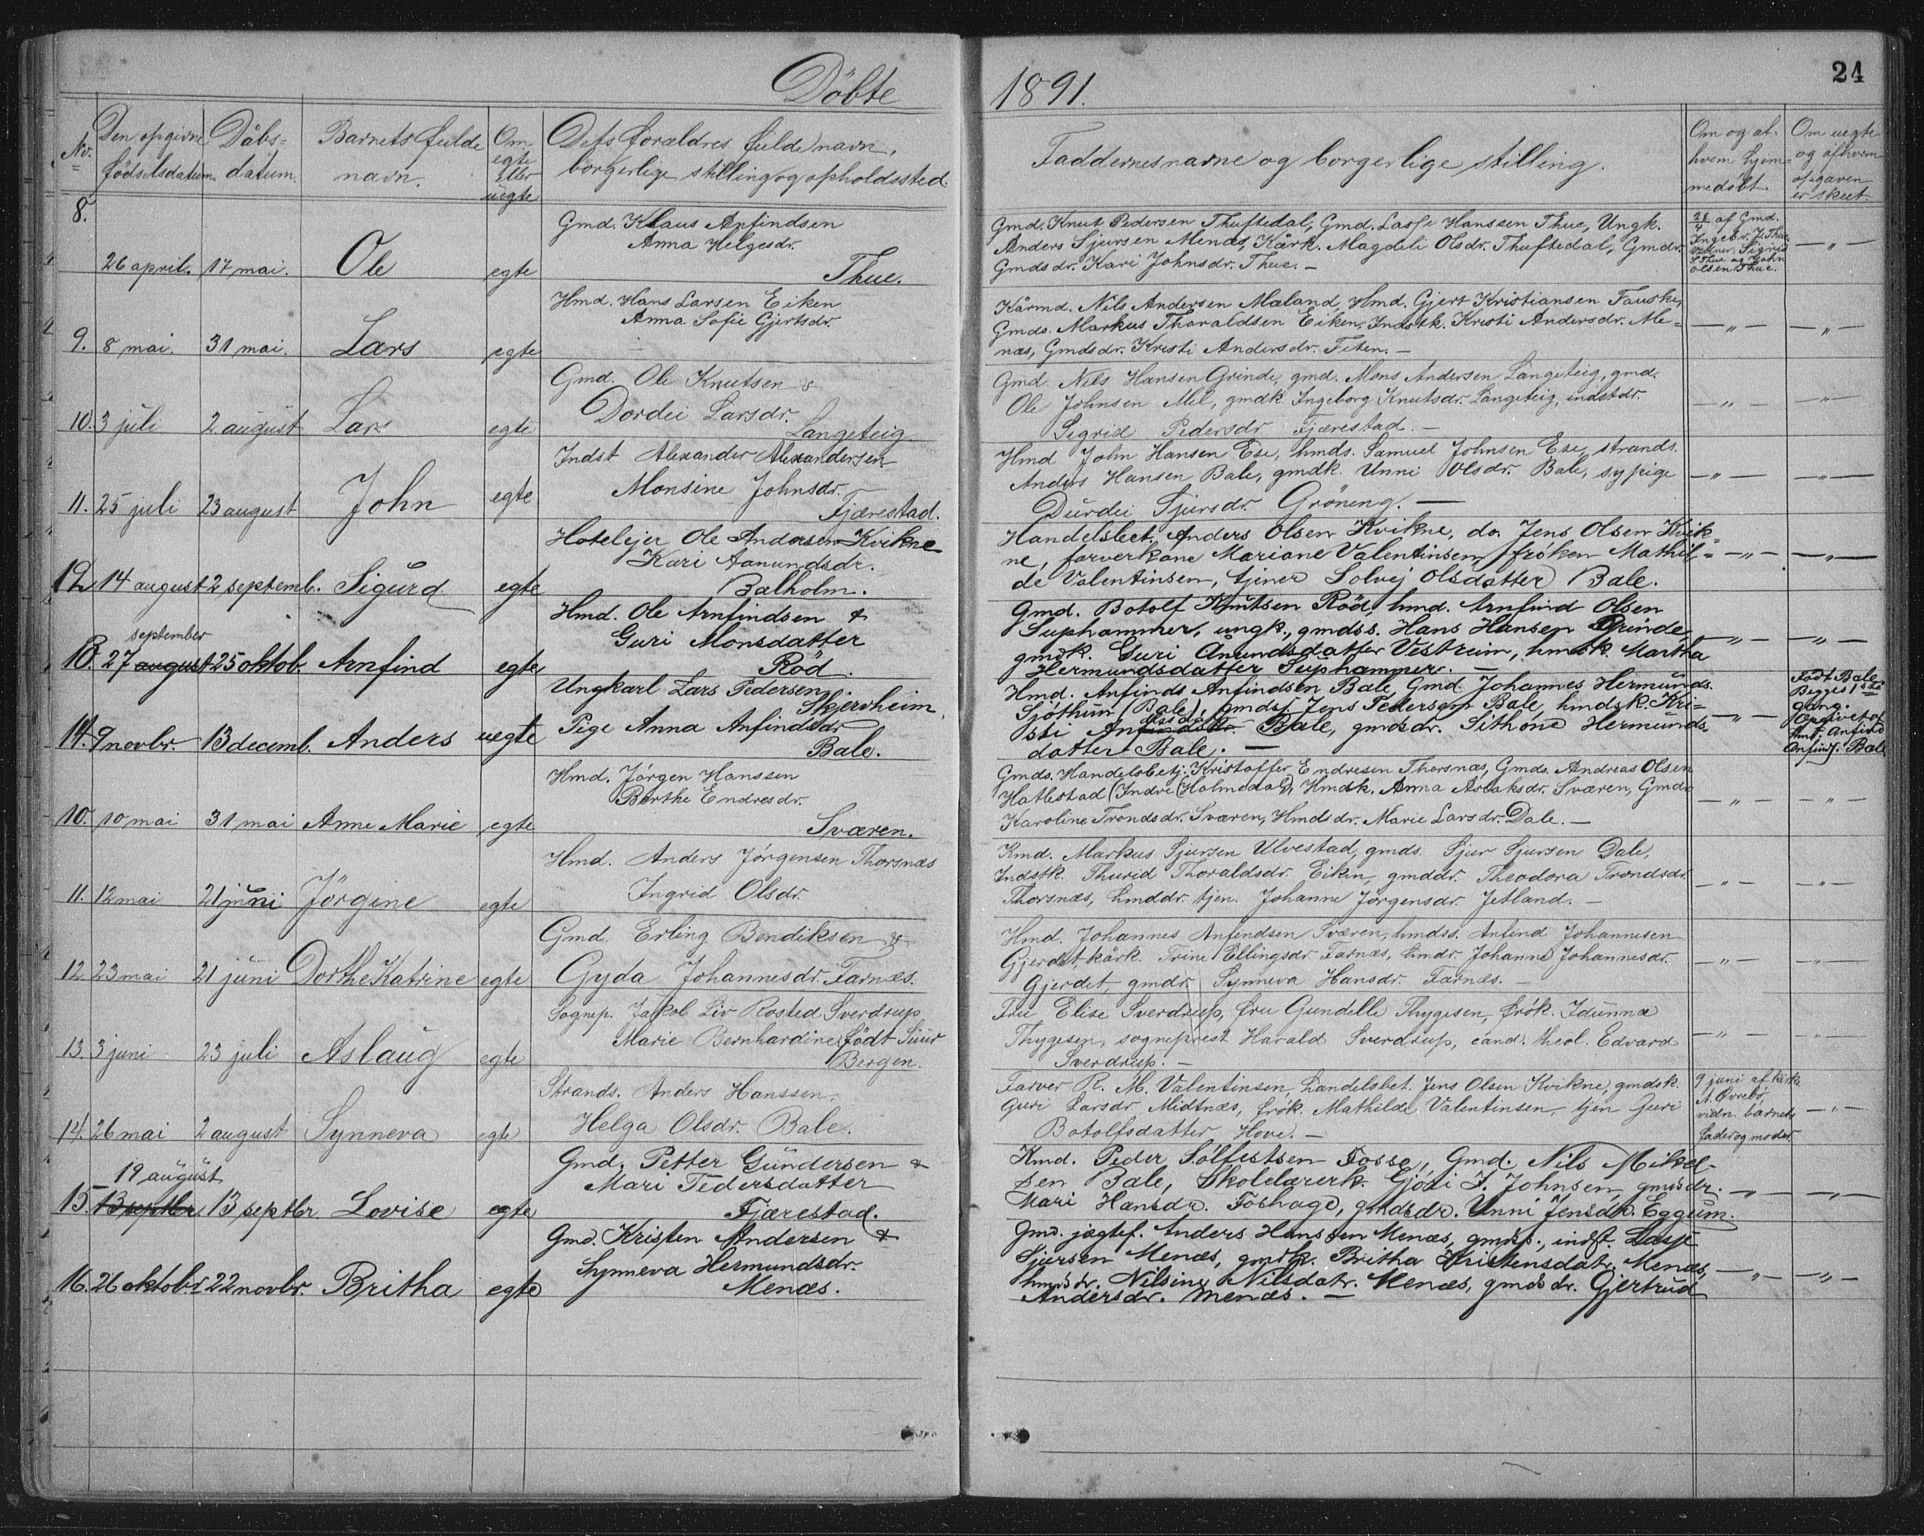 Döbte
1891.
24
No.
Den opgivne födselsdatum.
Dåbsdatum.
Barnets fulde navn.
Om egte eller uegte
Dets foraldres fulde navn, borgerlige stilling og opholdssted.
Faddernes navne og borgerlige stilling.
Om og af hvem hjemmedöbt
Om uegte og af hvem opgaven er skeet.
8. 26 april. 17 mai. Ole egte
Gmd. Klaus Anfindsen
Anna Helgesdr.
Thue.
Gmd. Knut Pedersen Thuftedal, Gmd. Lasse Hanssen Thue, Ungk.
Anders Sjursen Menæs, Kårk. Magdeli Olsdr. Thuftedal, Gmdr.
Gmdsdr. Kari Johnsdr. Thue. —
28/4 af Gmd.
Ingebr. J. Thue
vidner. Sigrid
S Thue og John
Olsen Thue.
— " —
9. 8 mai. 31 mai. Lars egte
Hmd. Hans Larsen Eiken
Anna Sofie Gjertsdr.
Kårmd. Nils Andersen Maland, Hmd. Gjert Kristiansen Fauske,
Gmds. Markus Thoraldsen Eiken, Indstk. Kristi Andersdr. Me-
næs, Gmdsdr. Kristi Andersdr. Feten. —
— " — — " —
10. 3 juli 2 august Lars egte
Gmd. Ole Knutsen &
Dordei Larsdr.
Langeteig.
Gmd. Nils Hansen Grinde, gmd. Mons Andersen Langeteig, gmd.
Ole Johnsen Mel, gmdk. Ingeborg Knutsdr. Langeteig, indstdr.
Sigrid Pedersdr Fjærestad. —
— " — — " —
11. 25 juli 23 august John egte
Indst Alexander Alexandersen
Monsine Johnsdr.
Fjærestad.
Hmd John Hansen Ese, hmds. Samuel Johnsen Ese, strands.
Anders Hansen Bale, gmdk. Unni Olsdr. Bale, sypige
Durdei Sjursdr. Gröneng. —
— " — — " —
12 14 august 2 septemb. Sigurd egte
Hotelejer Ole Andersen Kvikne
Kari Aamundsdr.
Balholm.
Handelsbet. Anders Olsen Kvikne, do. Jens Olsen Kvik-
ne, farverkone Mariane Valentinsen, fröken Mathil-
de Valentinsen, tjener Solvej Olsdatter Bale.
— " — — " —
september
13. 27 august 25 oktob. Arnfind egte
Hmd. Ole Arnfindsen &
Guri Monsdatter
Röd.
Gmd. Botolf Knutsen Röd, hmd. Arnfind Olsen
Suphammer, ungk., gmdss. Hans Hansen Grinde,
gmdk. Guri Amundsdatter Vestreim, hmdk. Martha
Hermundsdatter Suphammer. —
— " — — " —
14. 9 novbr. 13 decemb. Anders uegte
Ungkarl Lars Pedersen
Skjervheim,
Pige Anna Anfindsdr
Bale.
Hmd. Anfinds Anfindsen Bale, Gmd. Johannes Hermunds.
Sjöthun (Bale), hmds. Jens Pedersen Bale, hmdsk. Kri-
sti Anfindsdr. Bale, gmdsdr. Sithone Hermunds-
datter Bale. —
— " —
Födt Bale.
Begges 1ste
gang.
Opgivet af
Hmd. Anfind
Anfinds. Bale
10. 10 mai 31 mai Anne Marie egte
Hmd. Jörgen Hanssen
Berthe Endresdr.
Sværen.
Gmds. Handelsbetj. Kristoffer Endresen Thorsnæs, Gmds. Andreas Olsen
Hatlestad (Indre Holmedal), Hmdk. Anna Aslaksdr. Sværen, Gmdr.
Karoline Trondsdr. Sværen, Hmdsdr. Marie Larsdr. Dale. —
— " — — " —
11. 12 mai 21 juni Jörgine egte
Hmd. Anders Jörgensen Thorsnæs
Ingrid Olsdr.
Kmd. Markus Sjursen Ulvestad, gmds. Sjur Sjursen Dale,
Indstk. Thurid Thoraldsdr. Eiken, gmddr. Theodora Trondsdr
Thorsnæs, hmddr. tjen. Johanne Jörgensdr. Jetland. —
— " — — " —
12. 23 mai 21 juni Dorthe Katrine egte
Gmd. Erling Bendiksen &
Gyda Johannesdr. Farnæs.
Hmd. Johannes Anfindsen Sværen, hmdss. Anfind Johannesen
Gjerdet, kårk. Trine Ellingsdr Farnæs, hmdr. Johanne Johannesdr.
Gjerdet, gmdr. Synneva Hansdr. Farnæs. —
— " — — " —
13. 3 juni 23 juli Aslaug egte
Sognep. Jakob Liv Rosted Sverdrup
Marie Bernhardine födt Suur
Bergen.
Fru Elise Sverdrup, fru Gundelle Thygesen, frök. Idunna
Thygesen, sogneprest Harald Sverdrup, cand. theol. Edvard
Sverdrup. —
— " — — " —
14. 26 mai 2 august Synneva egte
Strands. Anders Hanssen,
Helga Olsdr. Bale.
Farver R. M. Valentinsen, handelsbet. Jens Olsen Kvikne, gmdsk.
Guri Larsdr. Midtnæs, frök. Mathilde Valentinsen, tjen Guri
Botolfsdatter Hove. —
9 juni af kirk
A. Övrebö,
vidn. barnets
fader og moder.
— " —
19 august
15. 13 septbr. 13 septbr. Lovise egte
Gmd. Petter Gundersen &
Mari Pedersdatter
Fjærestad.
Kmd. Peder Solfestsen Fosse, Gmd. Nils Mikel-
sen Bale, Skolelærerk. Gjöri J. Johnsen, gmdsdr.
Mari Hansdr. Foshage, gmdsdr. Unni Jensdr. Eggum.
— " — — " —
16. 26 oktobr. 22 novbr. Britha egte
Gmd. Kristen Andersen &
Synneva Hermundsdr.
Menæs.
Gmd. jægtef. Anders Hanssen Menæs, gmds., indst. Lasse
Sjursen Menæs, gmdk. Britha Kristensdatr. Menæs,
hmdsdr. Nilsine Nilsdatr. Menæs, gmdsdr. Gjertrud
Andersdr. Menæs. —
— " — — " —